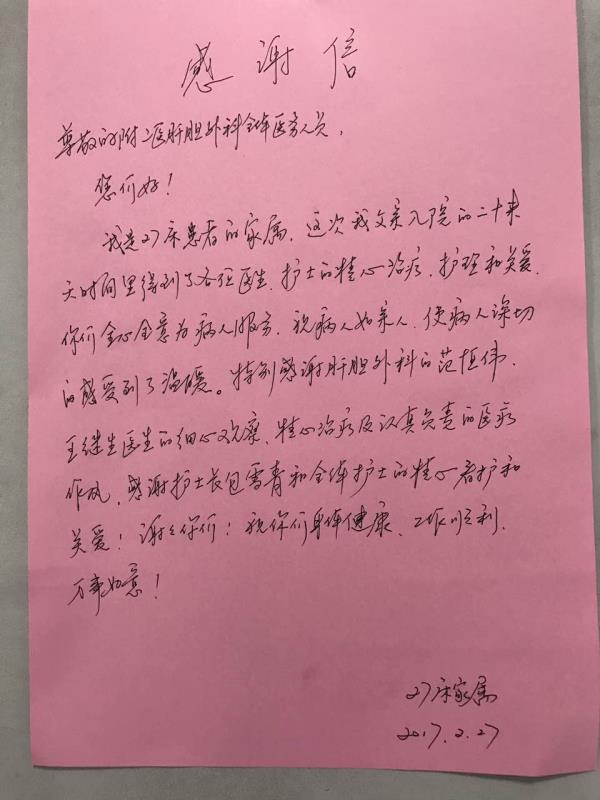 感谢信
尊敬的附二医肝胆外科全体医务人员,
您们好!
我是27床患者的家属,这次我父亲入院的二十来
天时间里得到了各位医生、护士的精心治疗、护理和关爱.
你们全心全意为病人服务、视病人如亲人、使病人深切
的感受到了温暖。特别感谢肝胆外科的范恒伟、
王继生医生的细心观察、精心治疗及认真负责的医疗
作风,感谢护士长包雪青和全体护士的精心看护和
关爱!谢谢你们!祝你们身体健康、工作顺利、
万事如意!
27床家属
2017.2.27